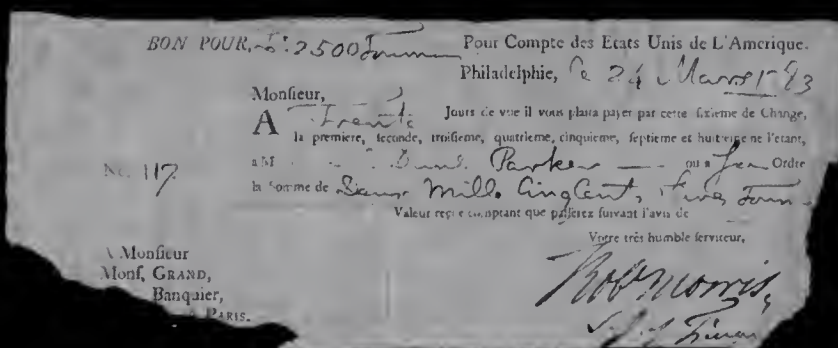 BON POUR, 2500 Pour Compte des Etats Unis de L'Amerique.
Philadelphie, le 24 Mars
Monſieur,
A Trente Jours de vue il vous plaira payer par cette ſixieme de Change,
la premiere, ſeconde, troiſieme, quatrieme, cinquieme, ſeptieme et huitieme ne l'etant,
a M Parker ou a ſon Ordre
No. 117
la Somme de Deux Mille Cinq Cent, Livres Tour
Valeur reçue comptant que paſſerez ſuivant l'avis de
Votre très humble ſerviteur,
A Monſieur
Monſ. GRAND,
Banquier,
A PARIS.
Rob Morris